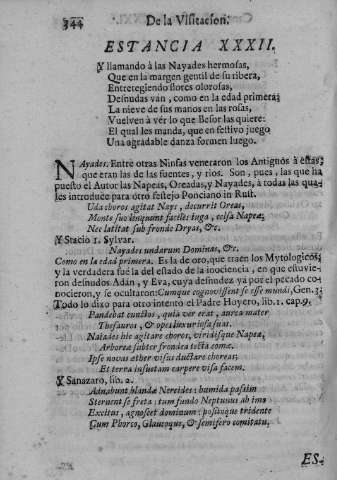 344 De la Visitacion.
ESTANCIA XXXII.
Y llamando à las Nayades hermosas,
Que en la margen gentil de su ribera,
Entretegiendo flores olorosas,
Desnudas van, como en la edad primera;
La nieve de sus manos en las rosas,
Vuelven à vèr lo que Besor las quiere:
El qual les manda, que en festivo juego
Una agradable danza formen luego.
NAyades. Entre otras Ninfas veneraron los Antiguos à estas;
que eran las de las fuentes, y rios. Son, pues, las que ha
puesto el Autor las Napeas, Oreadas, y Nayades, à todas las qua-
les introduce para otro festejo Ponciano in Rust.
Uda choros agitat Nays, decurrit Oreas,
Monte suo linquunt faciles iuga, celsa Napeæ;
Nec latitat sub fronde Dryas, &c.
Y Stacio 1. Sylvar.
Nayades undarum Dominas, &c.
Como en la edad primera. Es la de oro, que traen los Mytologicos,
y la verdadera fuè la del estado de la inociencia, en que estuvie-
ron desnudos Adàn, y Eva, cuya desnudez yà por el pecado co-
nocieron, y se ocultaron: Cumque cognovissent se esse mundi, Gen. 3:
Todo lo dixo para otro intento el Padre Hoyero, lib. 1. cap. 9.
Pandebat cunctos, quia ver erat, aurea mater
Thesauros, & opes luxuriosa suas.
Naiades hic agitare choros, viridisque Napeæ,
Arboreæ subter frondea tecta comæ.
Ipse novus æther visus ductare choreas;
Et terra insuetam carpere visa facem.
Y Sanazaro, lib. 2.
Adnabunt blandæ Nereides: humida passim
Sternent se freta: tum fundo Neptunus ab imo
Excitus, agnoscet dominum: positoque tridente
Cum Phorco, Glaucoque, & semifero comitatu,
ES-